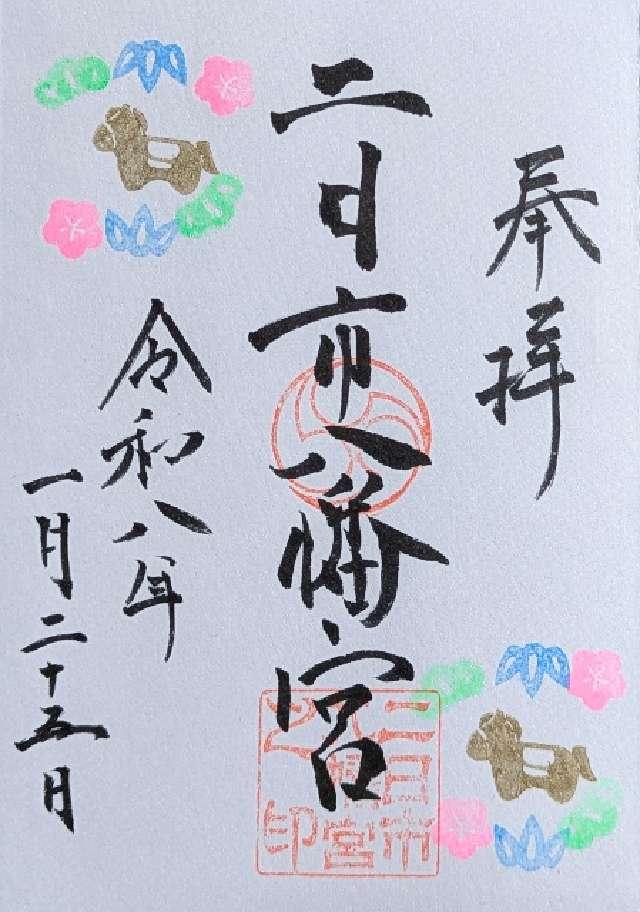 奉拝
二日市八幡宮
二日市
八幡宮
之印
令和八年
一月二十五日